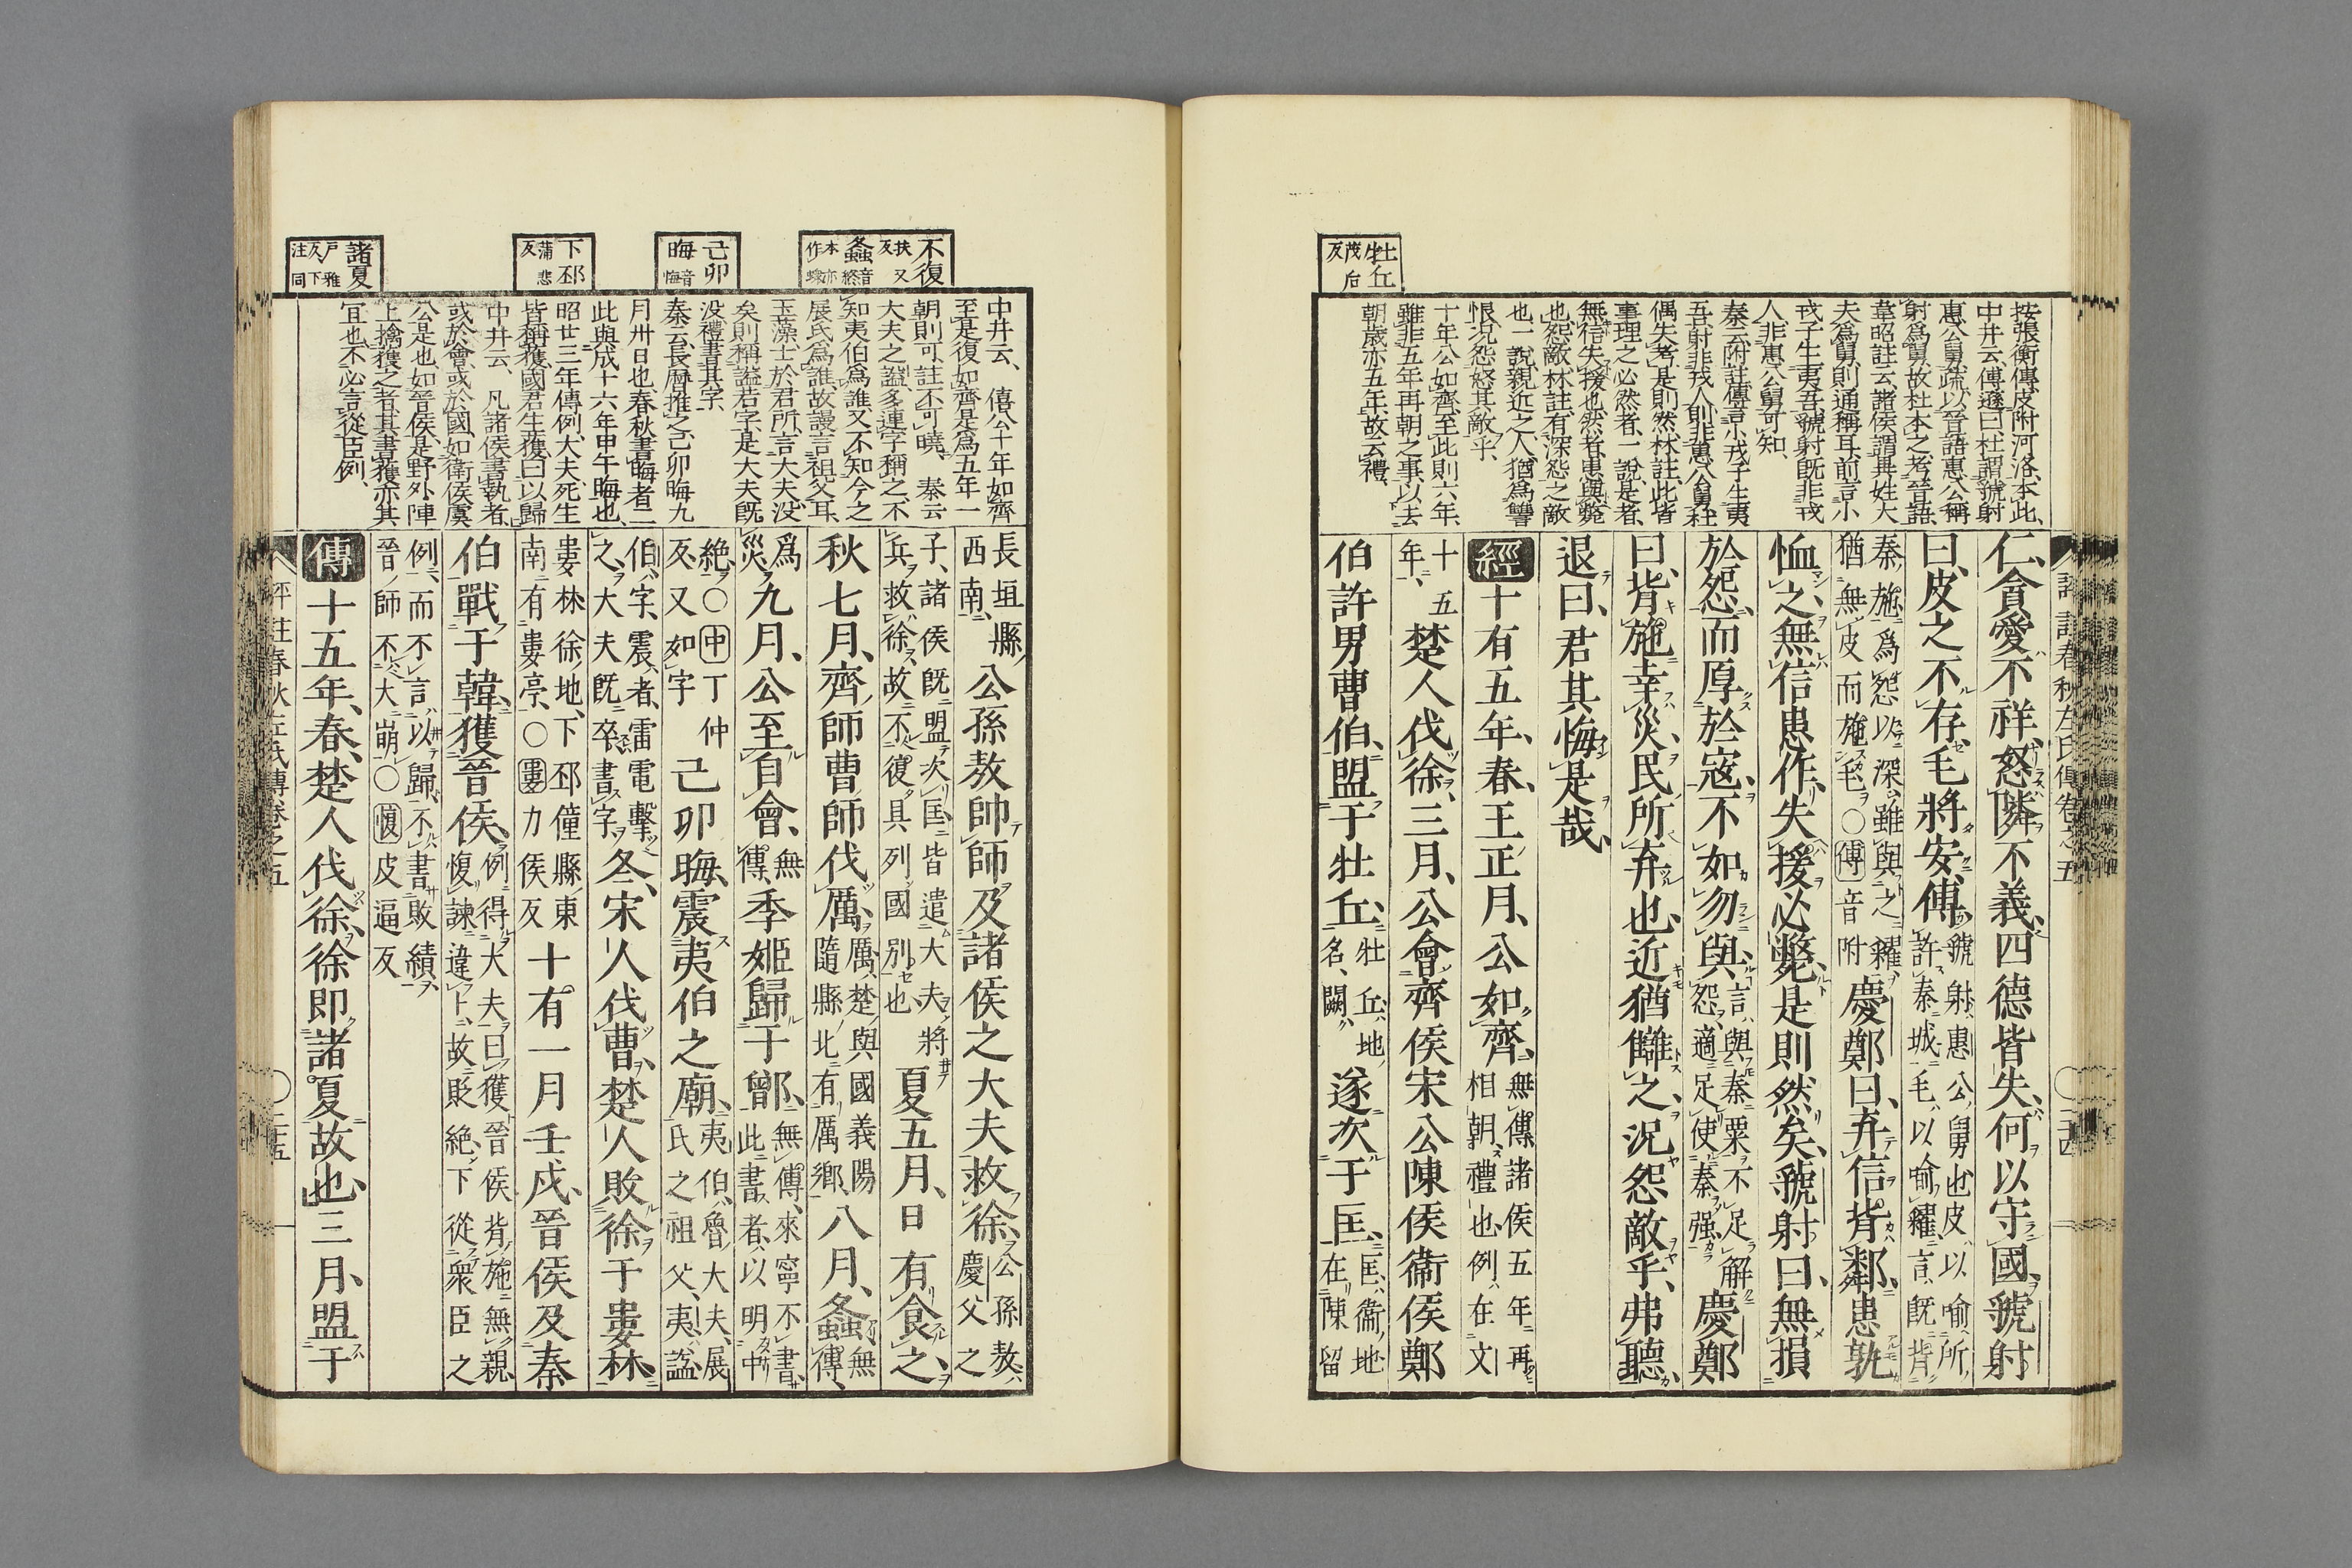 牡丘
茂后
反
按張衡傳皮附河洛本此、
中井云、傳遜曰、杜謂虢射
惠公舅、疏以晉語惠公稱
射爲舅、故杜本之、考晉語、
韋昭註云、諸侯謂異姓大
夫爲舅、則通稱耳、前言小
戎子生夷吾、虢射既非戎
人、非惠公舅可知、
秦云、附註傳言小戎子生夷
吾、射非戎人、則非惠公舅、杜
偶失考、是則然、林註、此皆
事理之必然者、一說、是者、
無信失援也、然者、患與斃
也、怨敵、林註、有深怨之敵
也、一說、親近之人、猶爲讐
恨、况怨怒其敵乎、
十年公如齊、至此則六年、
雖非五年再朝之事、以去
朝歲亦五年、故云禮、
仁、貪愛不祥、怒隣不義、四德皆失、何以守國、虢射
曰、皮之不存、毛將安傅、虢射、惠公舅也、皮以喻所
許秦城、毛以喻糴、言既背
秦施、爲怨以深、雖與之糴、
猶無皮而施毛、○傅音附慶鄭曰、弃信背鄰、患孰
恤之、無信患作、失援必斃、是則然矣、虢射曰、無損
於怨、而厚於寇、不如勿與、言與秦粟不足解
怨、適足使秦强慶鄭
曰、背施幸災、民所弃也、近猶讎之、況怨敵乎、弗聽、
退曰、君其悔是哉、
經十有五年、春、王正月、公如齊、無傳、諸侯五年再
相朝、禮也、例在文
十五
年、楚人伐徐、三月、公會齊侯宋公陳侯衞侯鄭
伯許男曹伯、盟于牡丘、牡丘、地
名、闕遂次于匡、匡、衞地、
在陳留
不復
扶又
反
螽音終
本亦
作𧑄
己卯
晦音悔
下邳
蒲悲
反
諸夏
戶雅
反下
注同
中井云、僖公十年如齊
至是復如齊、是爲五年一
朝則可、註不可曉、秦云
大夫之謚、多連字稱之、不
知夷伯爲誰、又不知今之
展氏爲誰、故謾言祖父耳、
玉藻、士於君所、言大夫沒
矣則稱謚若字、是大夫既
沒、禮書其字、
秦云、長曆推之、己卯晦九
月卅日也、春秋書晦者二
此與成十六年甲午晦也、
昭廿三年傳例、大夫死生
皆稱獲、國君生獲曰以歸
中井云、凡諸侯書執者、
或於會、或於國、如衛侯虞
公是也、如晉侯、是野外陣
上擒獲之者、其書獲亦其
宜也、不必言從臣例、
長垣縣
西南、公孫敖帥師及諸侯之大夫救徐、公孫敖、
慶父之
子、諸侯既盟次匡、皆遣大夫將
兵救徐、故不復具列國別也夏五月、日有食之、
秋七月、齊師曹師伐厲、厲、楚與國、義陽
隨縣北有厲鄉、八月、螽、無
傳、
爲
災九月、公至自會、無
傳季姬歸于鄫、無傳、來寧不書、
此書者、以明中
絶、○中丁仲
反又如字己卯晦、震夷伯之廟、夷伯、魯大夫、展
氏之祖父、夷、謚、
伯、字、震者、雷電擊
之、大夫既卒書字、冬、宋人伐曹、楚人敗徐于婁林、
婁林、徐地、下邳僮縣東
南有婁亭、○婁力侯反十有一月壬戌、晉侯及秦
伯戰于韓、獲晉侯、例得大夫曰獲、晉侯背施無親、
愎諫違卜、故貶絶、下從衆臣之
例、而不言以歸、不書敗績、
晉師不大崩、○愎皮逼反
傳十五年、春、楚人伐徐、徐即諸夏故也、三月、盟于
評註春秋左氏傳卷之五